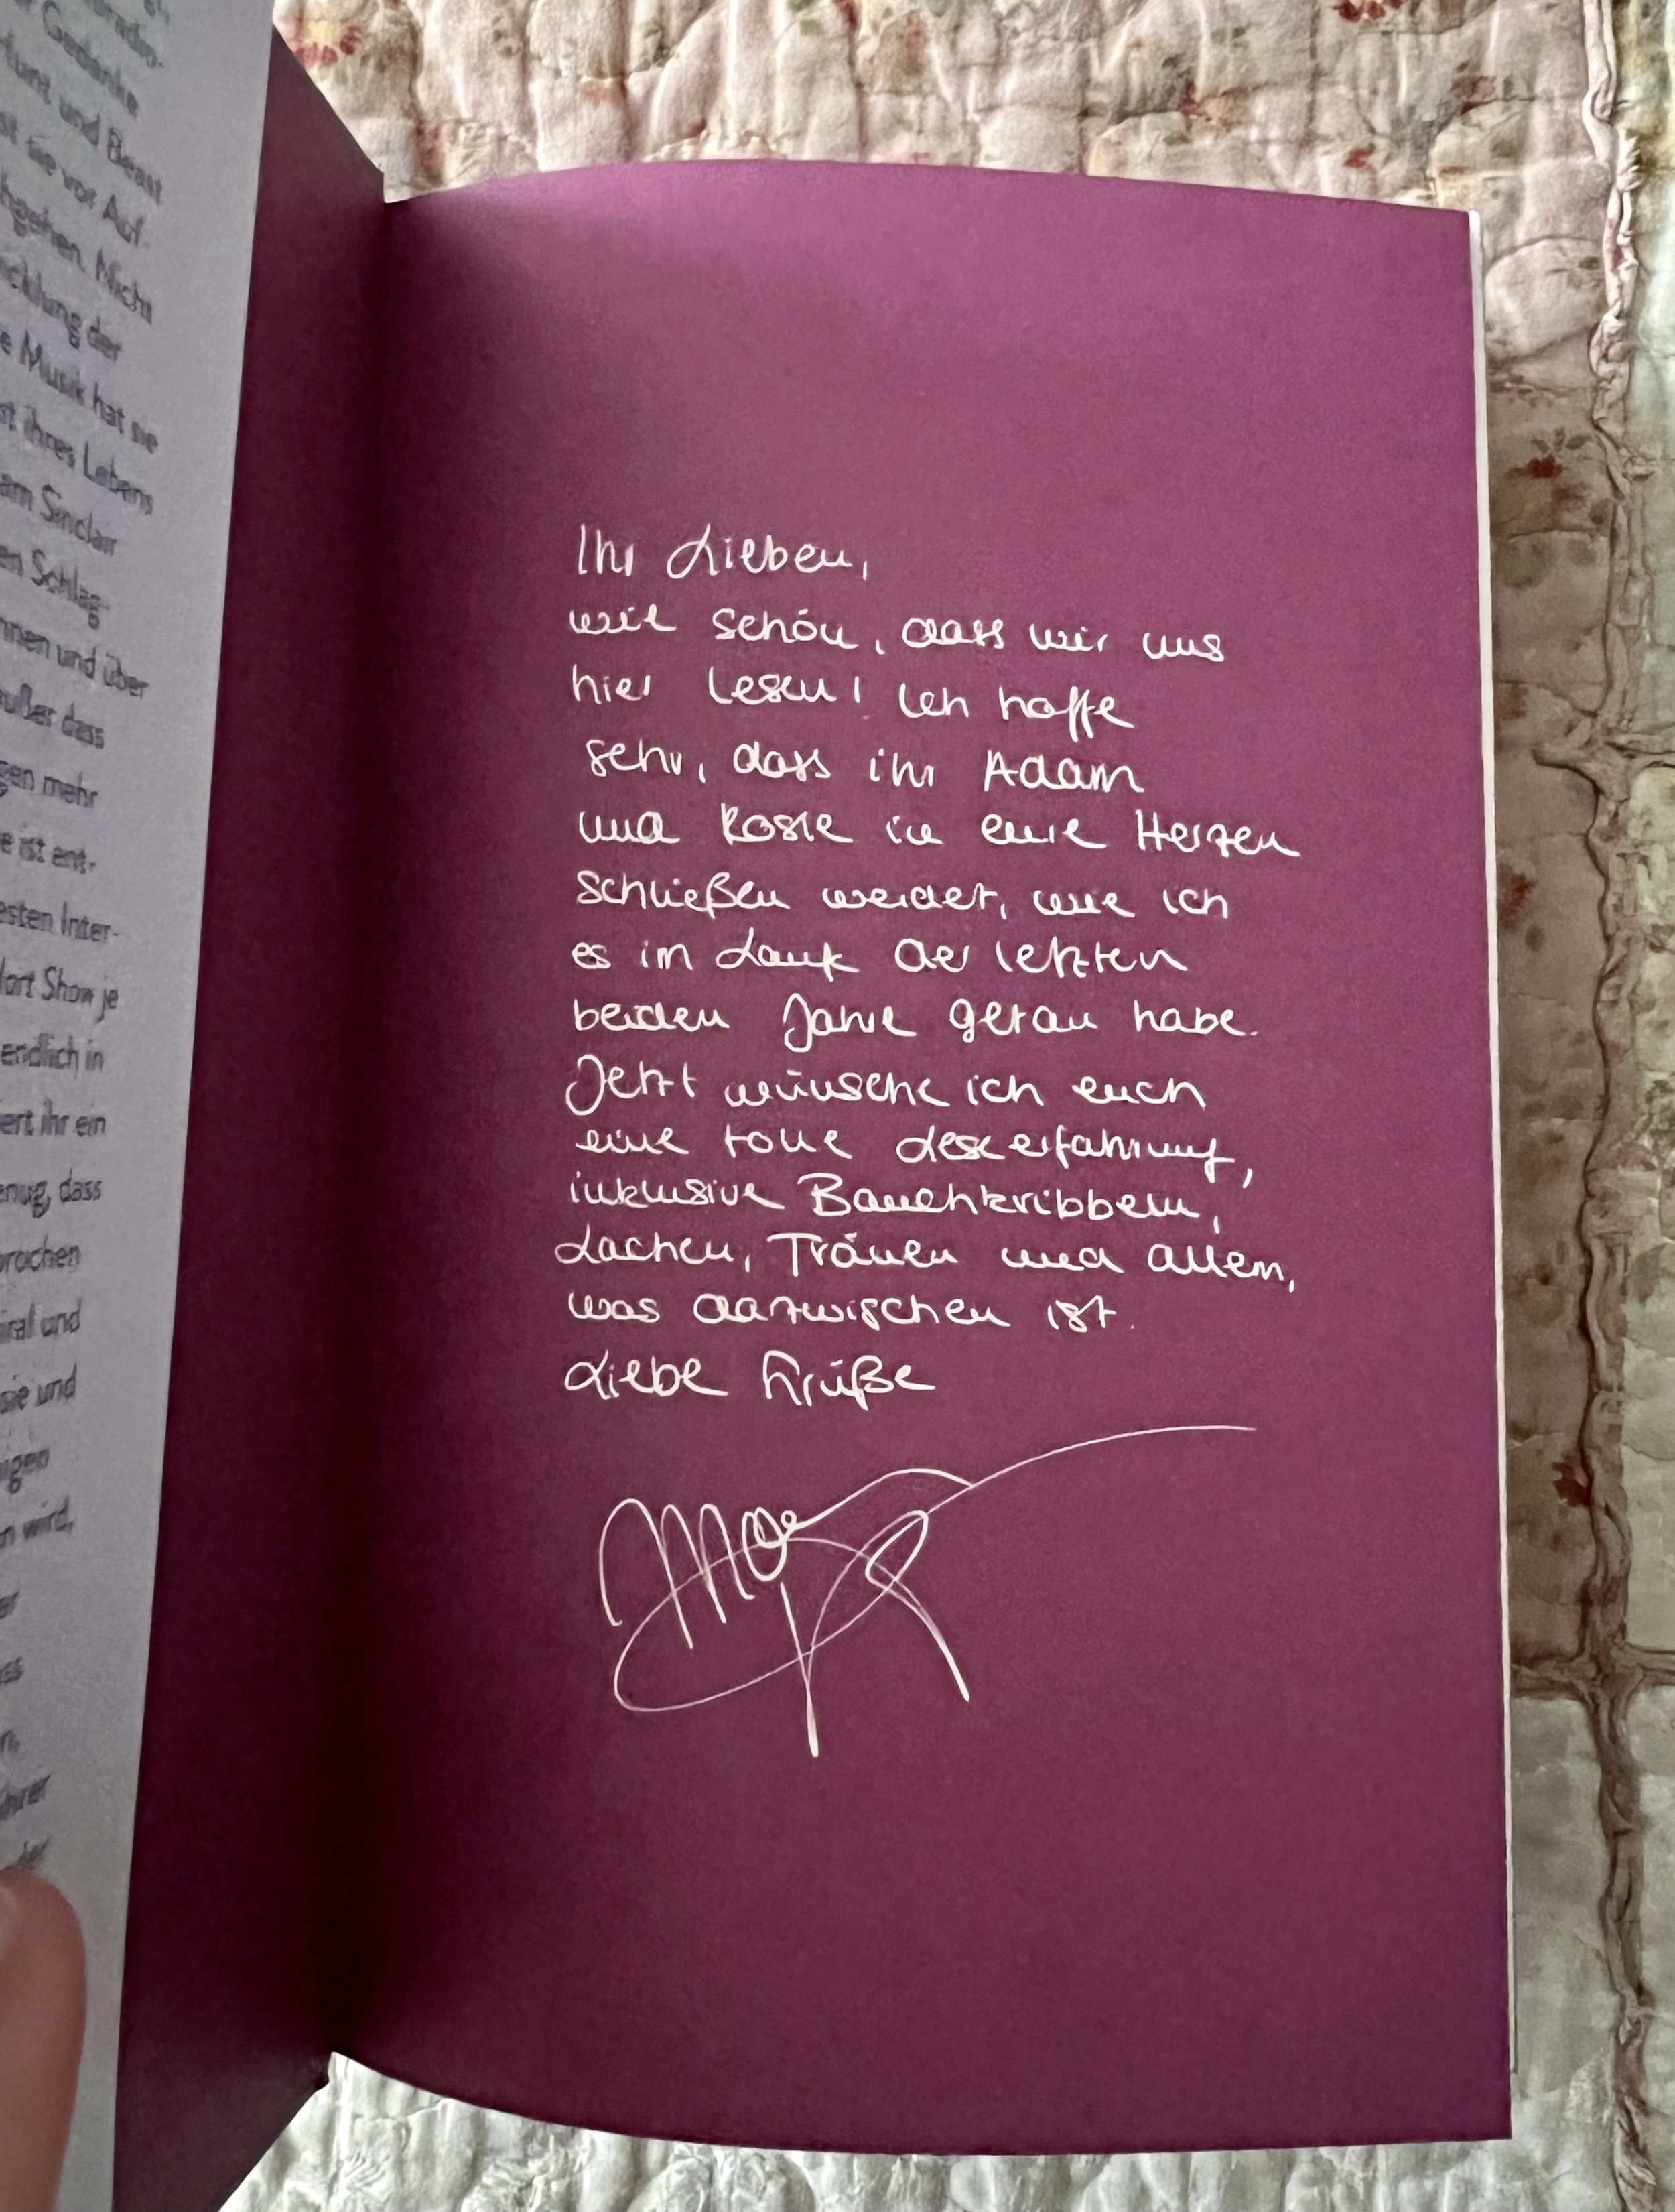 Gedanke
und Beast
sie vor Auf-
hgehen. Nicht
icklung der
e Musik hat sie
st ihres Lebens
am Sinclair
en Schlag-
nnen und über
außer dass
gen mehr
e ist ent-
esten Inter-
lart Show je
endlich in
ert ihr ein
enug, dass
prochen
iral und
sie und
igen
n wird,
Ihr Lieben,
wie schön, dass wir uns
hier lesen! Ich hoffe
sehr, dass ihr Adam
und Rosie in eure Herzen
schließen werdet, wie ich
es im Lauf der letzten
beiden Jahre getan habe.
Jetzt wünsche ich euch
eine tolle Leseerfahrung,
inklusive Bauchkribbeln,
Lachen, Tränen und allem,
was dazwischen ist.
Liebe Grüße